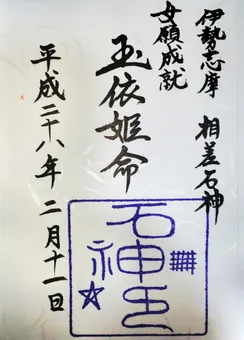 伊勢志摩 相差石神
女願成就
玉依姫命
平成二十八年 二月十一日
石神
神之印